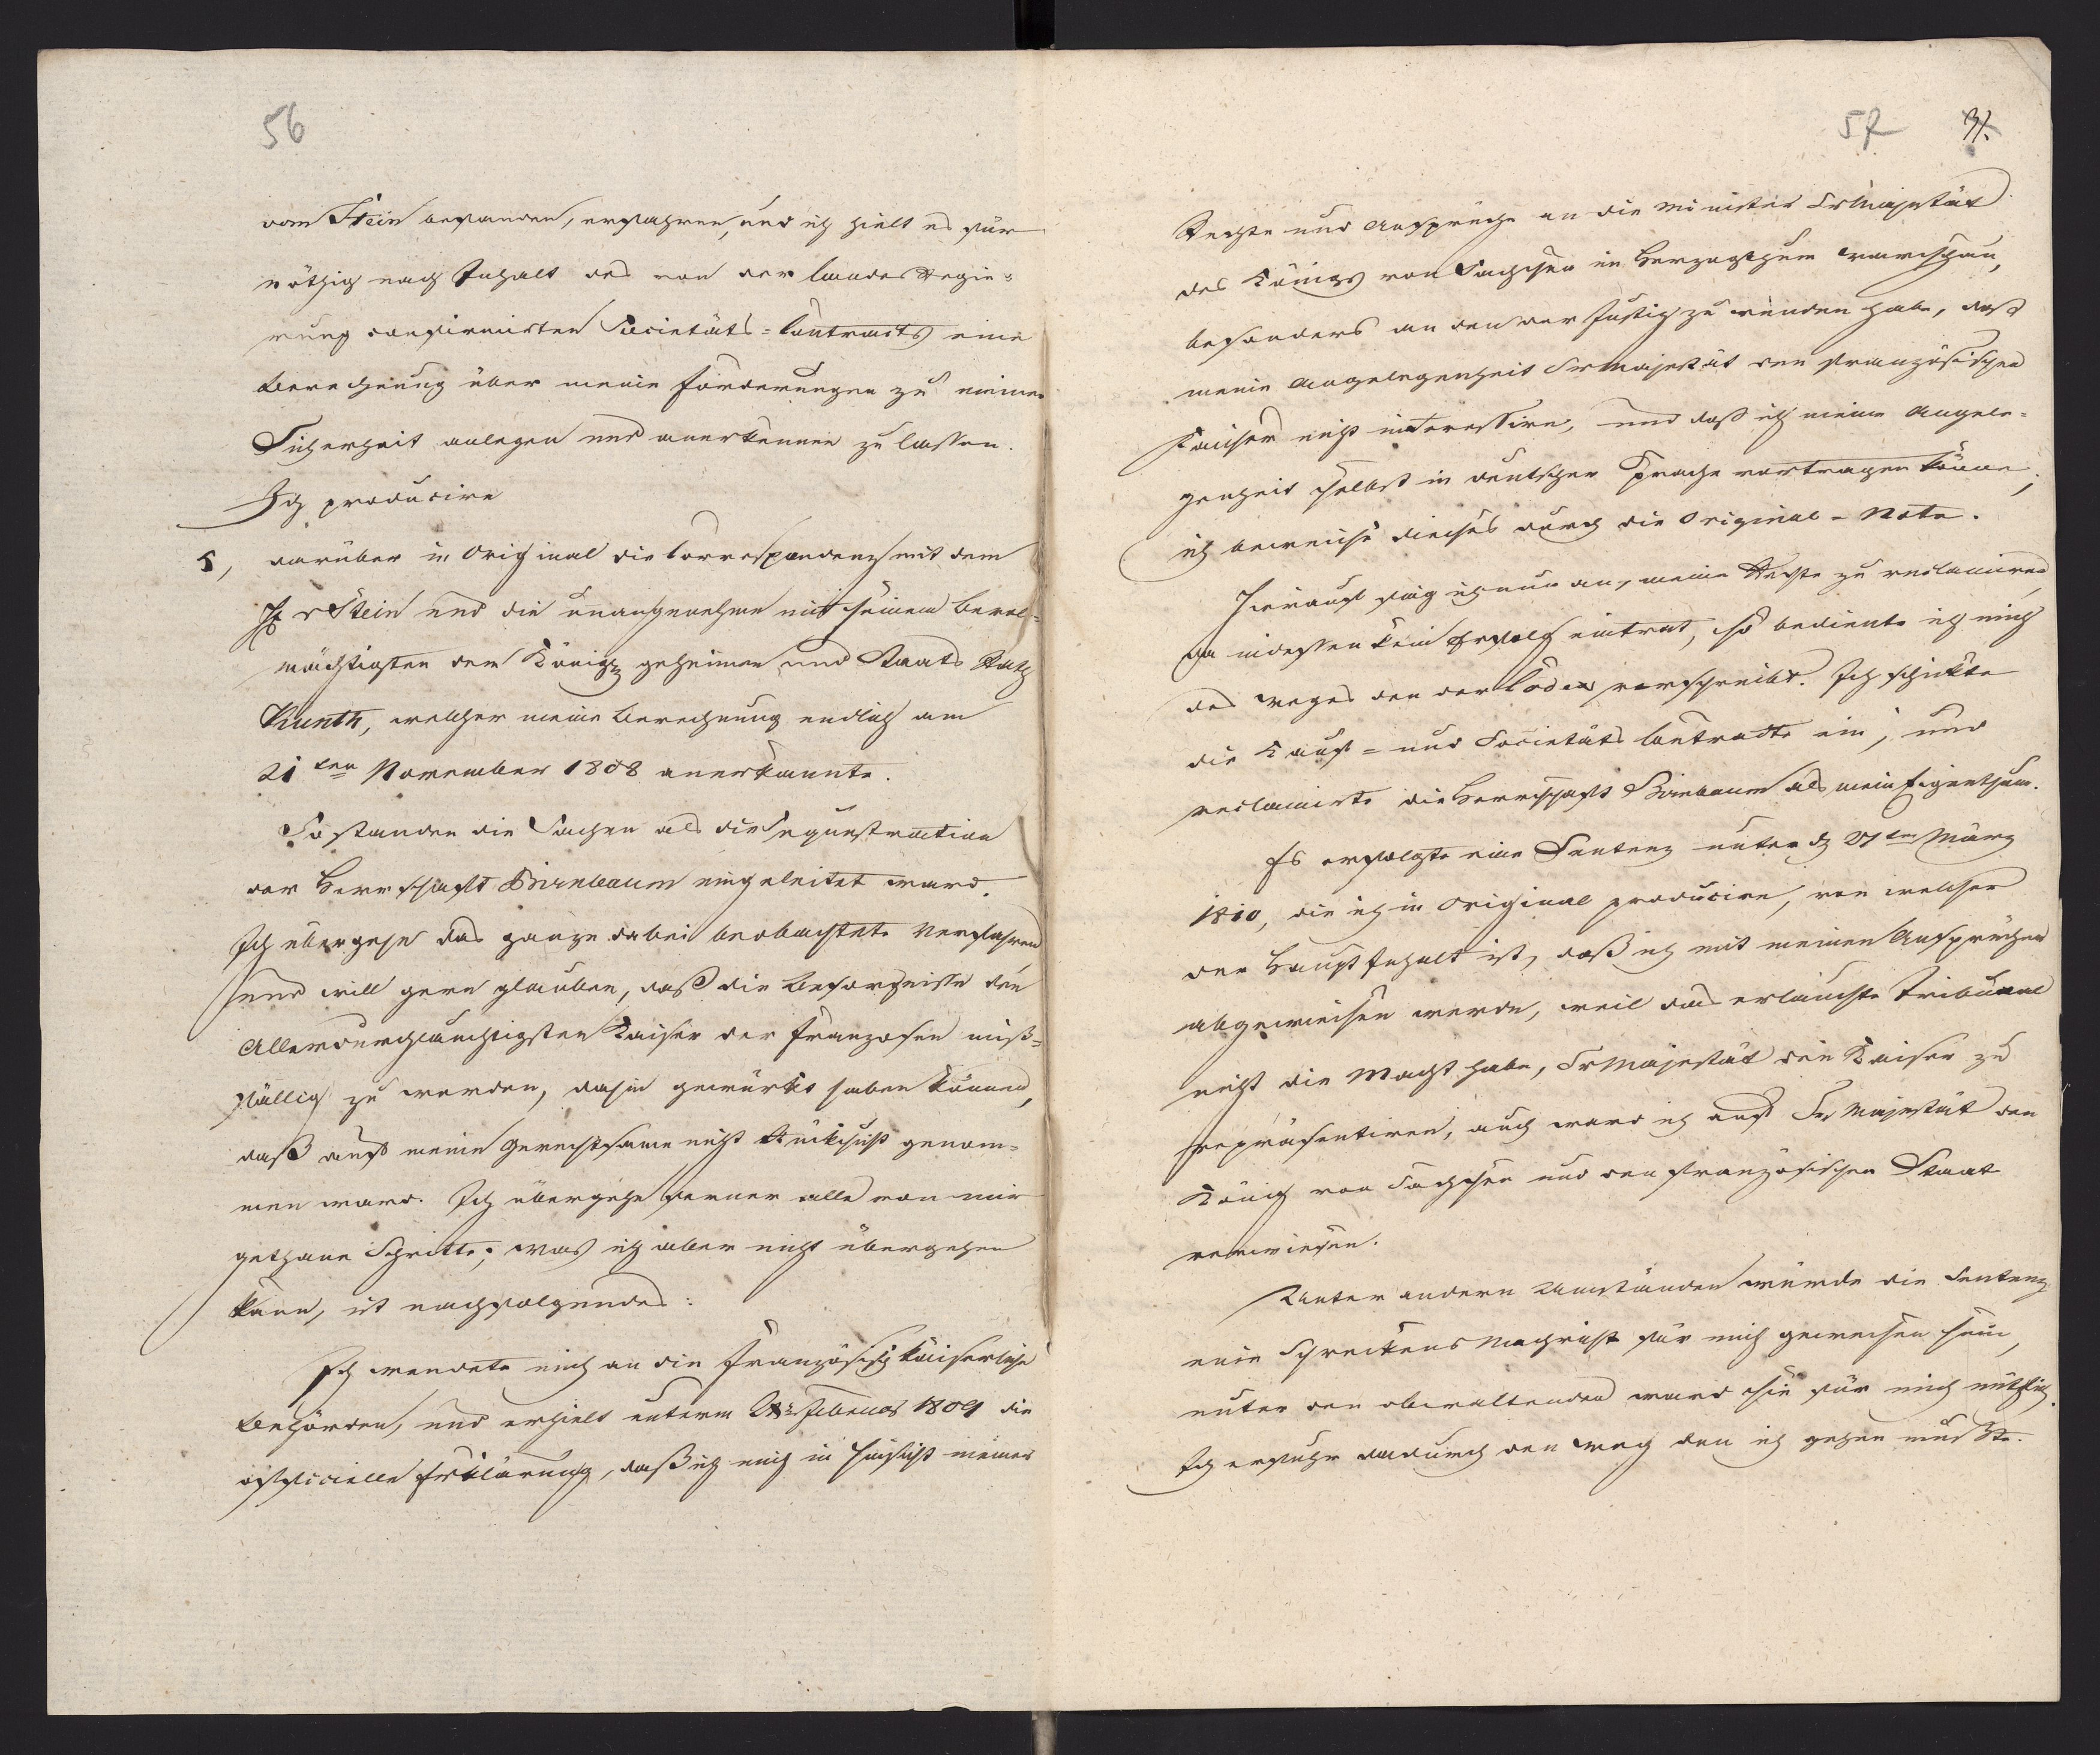 56
vom Stein befanden, erfahren, und ich hielt es für
nöthig nach Inhalt des von der Landes Regie-
rung confirmirten Societäts-Contracts eine
Berechnung über meine Forderungen zu meiner
Sicherheit anlegen und anerkennen zu lassen.
Ich producire
5, darüber in Original die Correspondenz mit dem
H v Stein und die unangenehme mit seinem Bevol-
mächtigsten dem Königl geheimen und Staats Rath
Kunth, welcher meine Berechnung endlich am
21ten November 1808 anerkannte.
So standen die Sachen als die Sequestration
der Herrschaft Birnbaum eingeleitet ward.
Ich übergehe das ganze dabei beobachtete Verfahren
und will gern glauben, daß die Besorgnisse den
Allerdurchlauchtigsten Kaiser der Franzosen miß-
fällig zu werden, dahin gewürkt haben können,
daß auf meine Gerechtsame nicht Rücksicht genom-
men ward. Ich übergehe ferner alle von mir
gethane Schritte; was ich aber nicht übergehen
kann, ist nachfolgendes:
Ich wendete mich an die Französisch Kaiserliche
Behörden, und erhielt unterm Februar 1809 die
officielle Erklärung, daß ich mich in Hinsicht meiner
57 31.
Rechte und Ansprüche an die Minister Sr Majestät
des Königs von Sachsen im Herzogthum Warschau,
besonders an den der Justiz zu wenden habe, daß
meine Angelegenheit Sr Majestät den französischen
Kaiser nicht interessire, und daß ich meine Angele-
genheit selbst in deutscher Sprache vortragen könne;
ich beweise dieses durch die Original-Note.
Hierauf fing ich nun an, meine Rechte zu reclamiren,
da indessen kein Erfolg eintrat, so bediente ich mich
des Weges den der Codex vorschreibt. Ich schickte
die Kauf- und Societäts Contracte ein, und
reclamirte die Herrschaft Birnbaum als mein Eigenthum.
Es erfolgte eine Sentenz unter d 27ten März
1810, die ich in Original producire, von welcher
der Haupt Inhalt ist, daß ich mit meinen Ansprüchen
abgewiesen werde, weil das erlauchte Tribunal
nicht die Macht habe, Sr Majestät den Kaiser zu
repräsentiren, auch ward ich auf Se Majestät den
König von Sachsen und den französischen Staat
verwiesen.
Unter andern Umständen würde die Sentenz
eine Schreckens Nachricht für mich gewesen sein,
unter den obwaltenden ward sie für mich nützlich.
Ich erfuhr dadurch den Weg den ich gehen mußte.